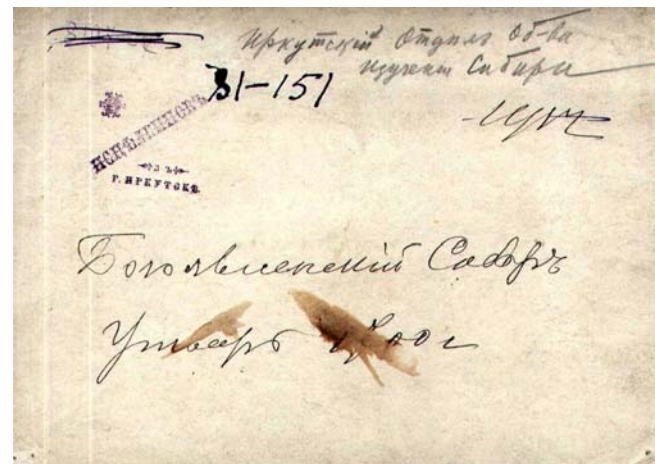 Иркутскій Отдѣлъ Об-ва
изученія Сибири
31-151
1912
въ
Г. ИРКУТСКѢ.
Богоявленскій Соборъ
Утварь